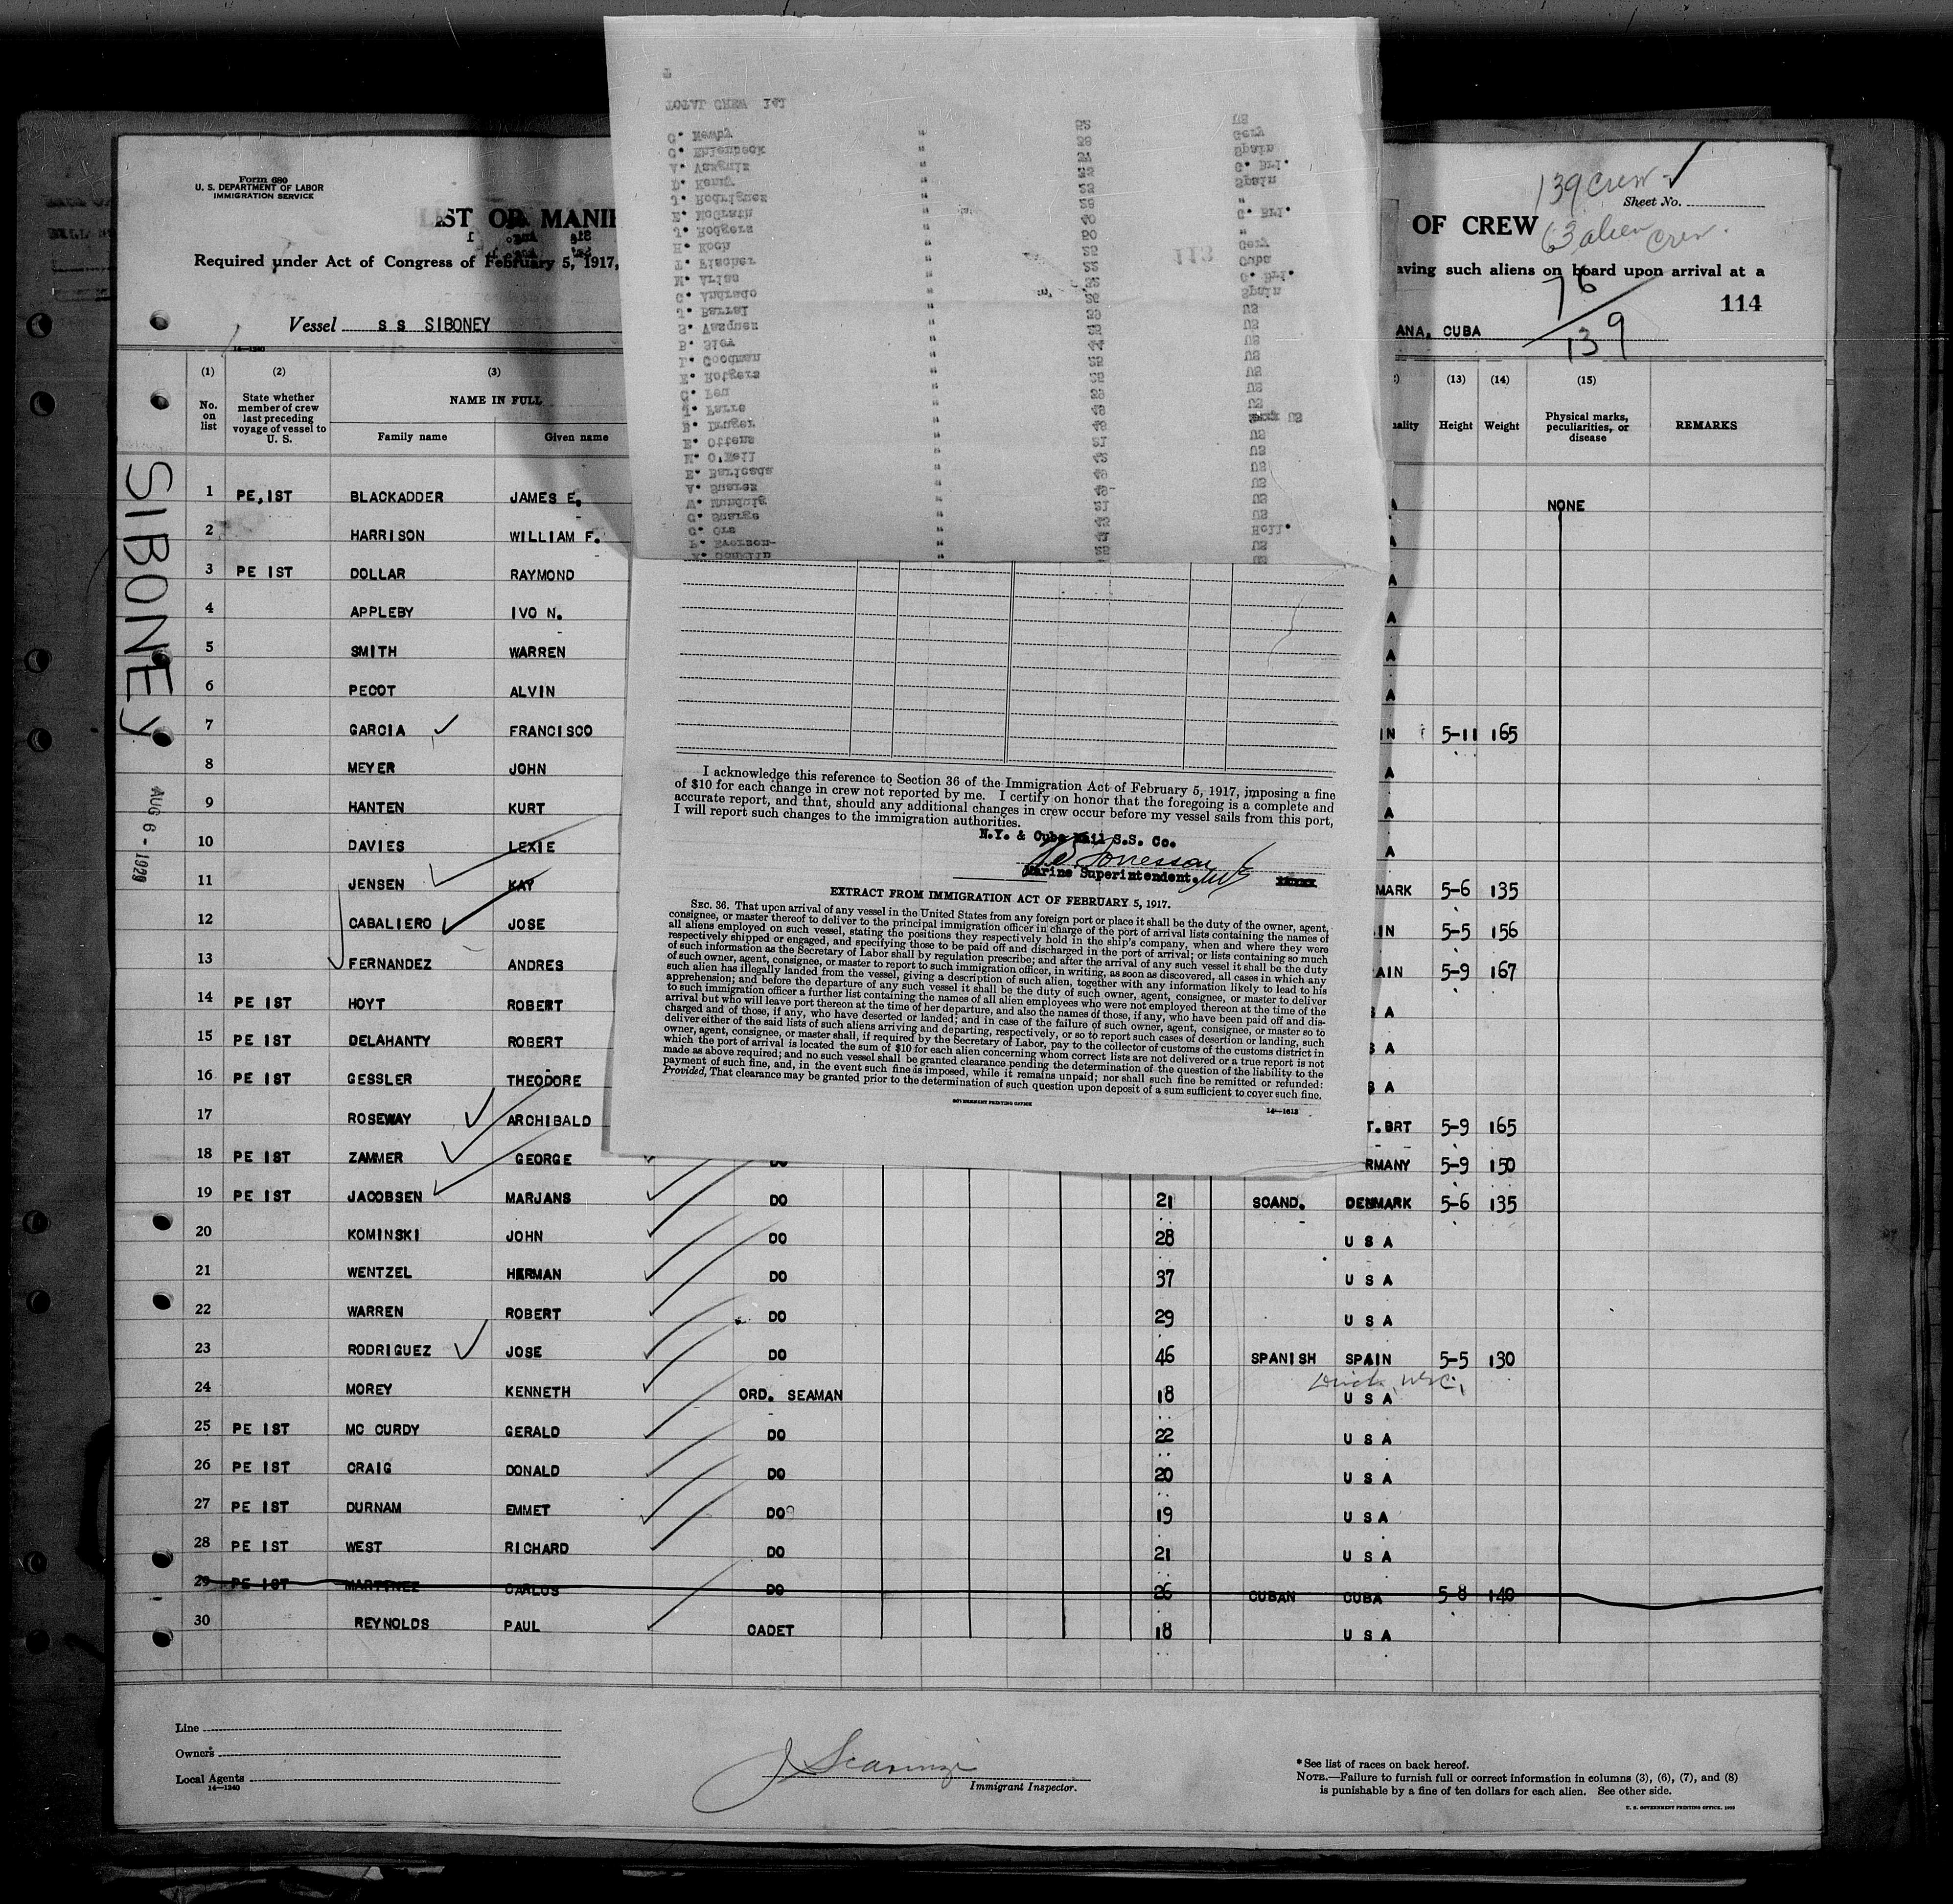 Form 680
U. S. DEPARTMENT OF LABOR
IMMIGRATION SERVICE
OF CREW
139 Crew
Sheet No.
63 alien Crew.
Required under Act of Congress of February 5, 1917,
aving such aliens on board upon arrival at a
76
139
114
Vessel S S SIBONEY
ANA, CUBA
14—1240
(1) (2) (3) (13) (14) (15)
No. on list
State whether member of crew last preceding voyage of vessel to U. S.
NAME IN FULL
Family name Given name
Height Weight
Physical marks, peculiarities, or disease
REMARKS
SIBONEY
AUG 6 - 1929
1 PE, IST BLACKADDER JAMES E. A NONE
2 HARRISON WILLIAM F. A
3 PE IST DOLLAR RAYMOND A
4 APPLEBY IVO N. A
5 SMITH WARREN A
6 PECOT ALVIN A
7 GARCIA FRANCISCO IN 5-11 165
8 MEYER JOHN A
9 HANTEN KURT A
10 DAVIES LEXIE A
11 JENSEN KAY MARK 5-6 135
12 CABALIERO JOSE IN 5-5 156
13 FERNANDEZ ANDRES AIN 5-9 167
14 PE IST HOYT ROBERT A
15 PE IST DELAHANTY ROBERT A
16 PE IST GESSLER THEODORE A
17 ROSEWAY ARCHIBALD T.BRT 5-9 165
18 PE IST ZAMMER GEORGE DO RMANY 5-9 150
19 PE IST JACOBSEN MARJANS DO 21 SCAND. DENMARK 5-6 135
20 KOMINSKI JOHN DO 28 U S A
21 WENTZEL HERMAN DO 37 U S A
22 WARREN ROBERT DO 29 U S A
23 RODRIGUEZ JOSE DO 46 SPANISH SPAIN 5-5 130
24 MOREY KENNETH ORD. SEAMAN 18 U S A
25 PE IST MC CURDY GERALD DO 22 U S A
26 PE IST CRAIG DONALD DO 20 U S A
27 PE IST DURNAM EMMET DO 19 U S A
28 PE IST WEST RICHARD DO 21 U S A
29 PE IST MARTINEZ CARLOS DO 26 CUBAN CUBA 5 8 140
30 REYNOLDS PAUL CADET 18 U S A
TOTAL CREW 141
C. Newby " 52 US
C. Ehlenbeck " Gery
" Spain
D. Kenny " G. Bri.
J. Rodriguez " Spain
E. McGrath " "
J. Rodgers " 40 G. Bri.
H. Koch " 50 "
T. Fischer " Gery
M. Arias " Cuba
C. Andrado " G. Bri.
J. Barral " Spain
S. Vazquez " US
B. Sloy " US
P. Goodman " US
E. Rodgers " US
" US
" US
" US
E. Ottens " 21 US
M. O.Neil " US
" US
A. Suarez " US
" 21 US
" US
" Holl.
" US
113
I acknowledge this reference to Section 36 of the Immigration Act of February 5, 1917, imposing a fine
of $10 for each change in crew not reported by me. I certify on honor that the foregoing is a complete and
accurate report, and that, should any additional changes in crew occur before my vessel sails from this port,
I will report such changes to the immigration authorities.
N.Y. & Cuba Mail S.S. Co.
Marine Superintendent.
EXTRACT FROM IMMIGRATION ACT OF FEBRUARY 5, 1917.
SEC. 36. That upon arrival of any vessel in the United States from any foreign port or place it shall be the duty of the owner, agent,
consignee, or master thereof to deliver to the principal immigration officer in charge of the port of arrival lists containing the names of
all aliens employed on such vessel, stating the positions they respectively hold in the ship's company, when and where they were
respectively shipped or engaged, and specifying those to be paid off and discharged in the port of arrival; or lists containing so much
of such information as the Secretary of Labor shall by regulation prescribe; and after the arrival of any such vessel it shall be the duty
of such owner, agent, consignee, or master to report to such immigration officer, in writing, as soon as discovered, all cases in which any
such alien has illegally landed from the vessel, giving a description of such alien, together with any information likely to lead to his
apprehension; and before the departure of any such vessel it shall be the duty of such owner, agent, consignee, or master to deliver
to such immigration officer a further list containing the names of all alien employees who were not employed thereon at the time of the
arrival but who will leave port thereon at the time of her departure, and also the names of those, if any, who have been paid off and dis-
charged and of those, if any, who have deserted or landed; and in case of the failure of such owner, agent, consignee, or master so to
deliver either of the said lists of such aliens arriving and departing, respectively, or so to report such cases of desertion or landing, such
owner, agent, consignee, or master shall, if required by the Secretary of Labor, pay to the collector of customs of the customs district in
which the port of arrival is located the sum of $10 for each alien concerning whom correct lists are not delivered or a true report is not
made as above required; and no such vessel shall be granted clearance pending the determination of the question of the liability to the
payment of such fine, and, in the event such fine is imposed, while it remains unpaid; nor shall such fine be remitted or refunded:
Provided, That clearance may be granted prior to the determination of such question upon deposit of a sum sufficient to cover such fine.
GOVERNMENT PRINTING OFFICE
14—1613
Line
Owners
Local Agents
14—1240
Immigrant Inspector.
* See list of races on back hereof.
NOTE.—Failure to furnish full or correct information in columns (3), (6), (7), and (8)
is punishable by a fine of ten dollars for each alien. See other side.